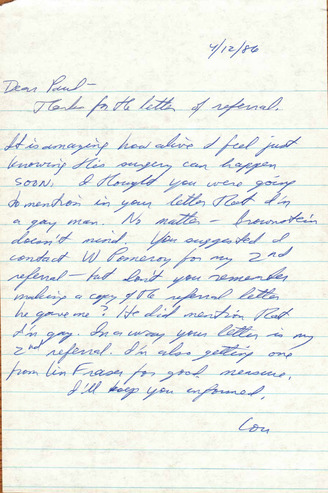 4/12/86
Dear Paul-
Thanks for the letter of referral.
It is amazing how alive I feel just
knowing this surgery can happen
soon. I thought you were going
to mention in your letter that I'm
a gay man. No matter - Brownstein
doesn't mind. You suggested I
contact W Pomeroy for my 2nd
referral - but don't you remember
making a copy of the referral letter
he gave me? He did mention that
I'm gay. In a way your letter is my
2nd referral. I'm also getting one
from Lin Fraser for good measure.
I'll keep you informed.
Lou